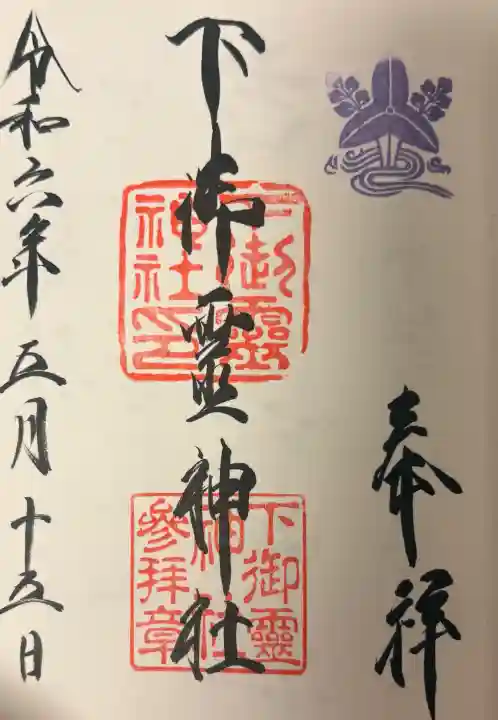 奉祥
下御霊神社
下御靈神社印
下御靈神社參拜章
令和六年五月十五日